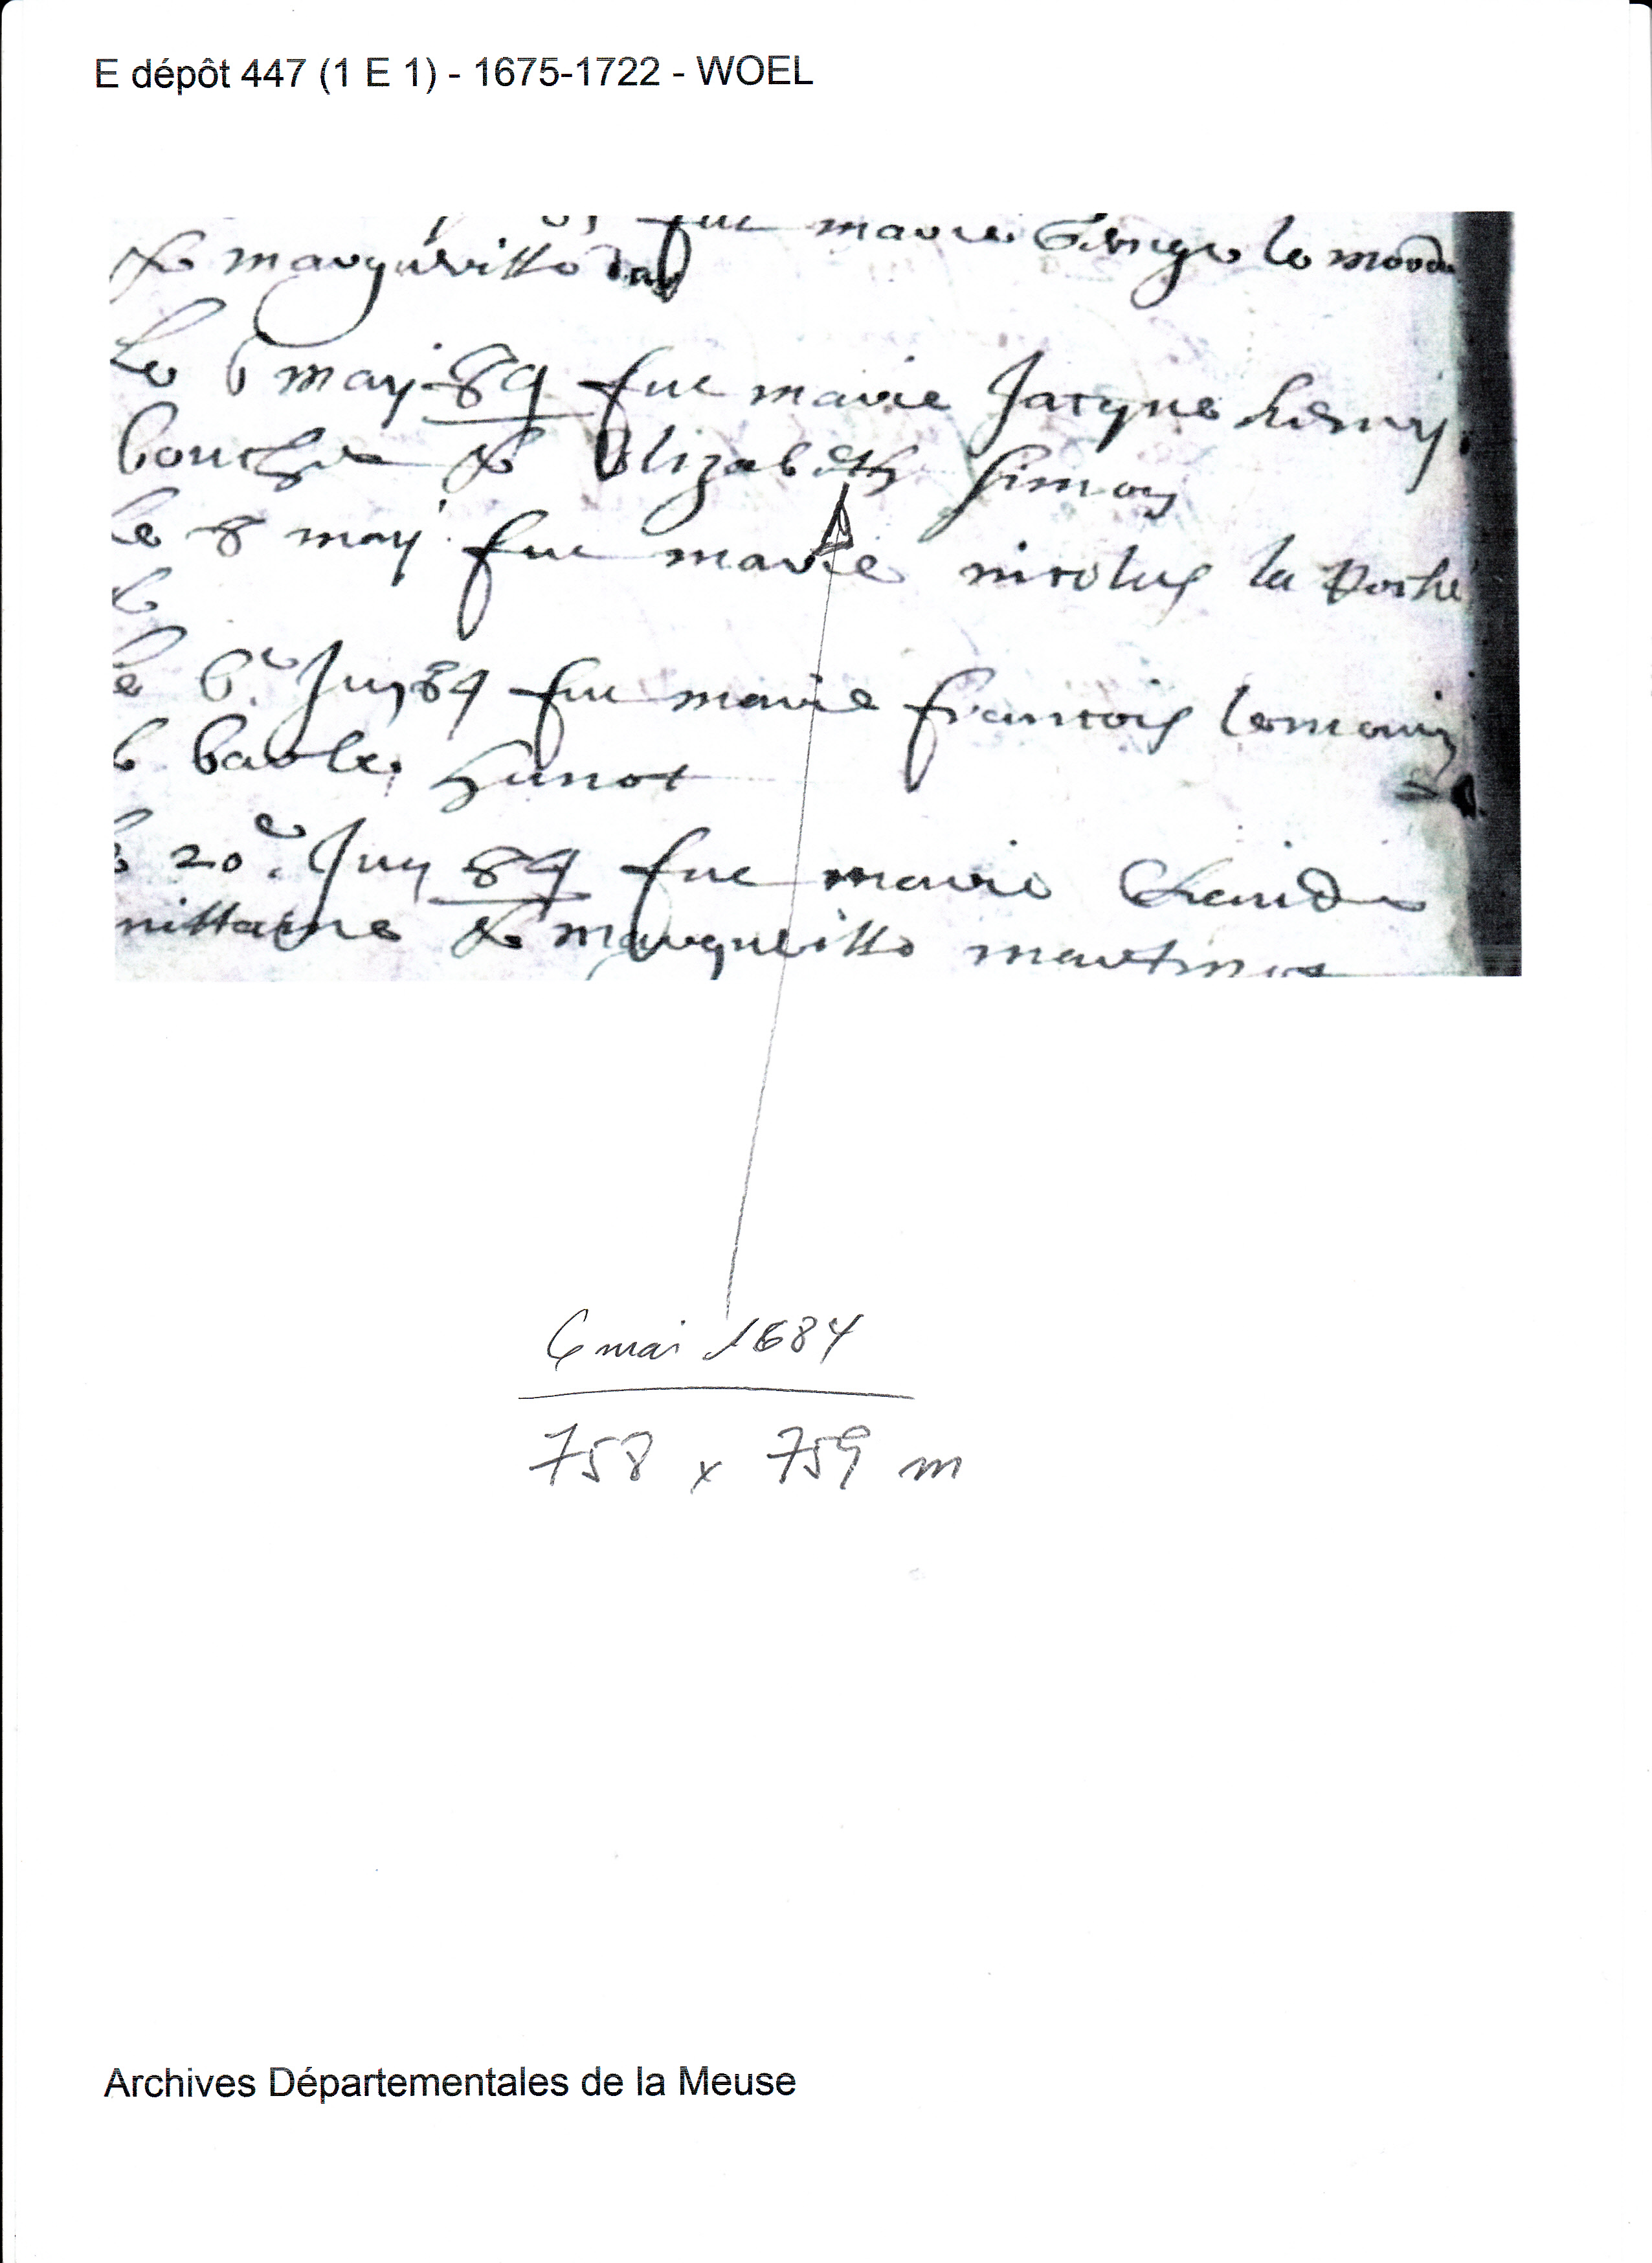 E dépôt 447 (1 E 1) - 1675-1722 - WOEL
fut marie le
& margueritte
Le 6 may 84 fut marie Jacque henry
bouche & Elizabeth Simon
le 8 may fut marie nicolas la
&
le 6e Juin 84 fut marie francois lemoin
& barbe hunot
le 20e Juin 84 fut marie Claude
& margueritte martinot
6 mai 1684
758 x 759 m
Archives Départementales de la Meuse